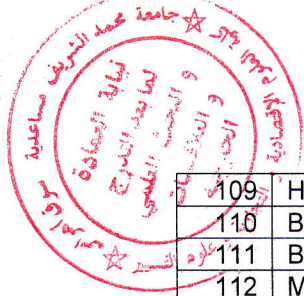 جامعة محمد الشريف مساعدية سوق أهراس
نيابة العمادة
لما بعد التدرج
و البحث العلمي
و العلاقات
الخارجية
علوم التسيير
109 H
110 B
111 B
112 M